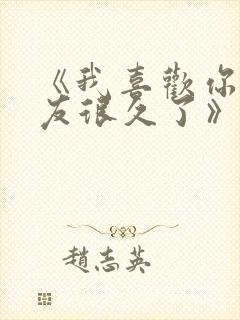 《我喜歡你
友很久了》
趙志英